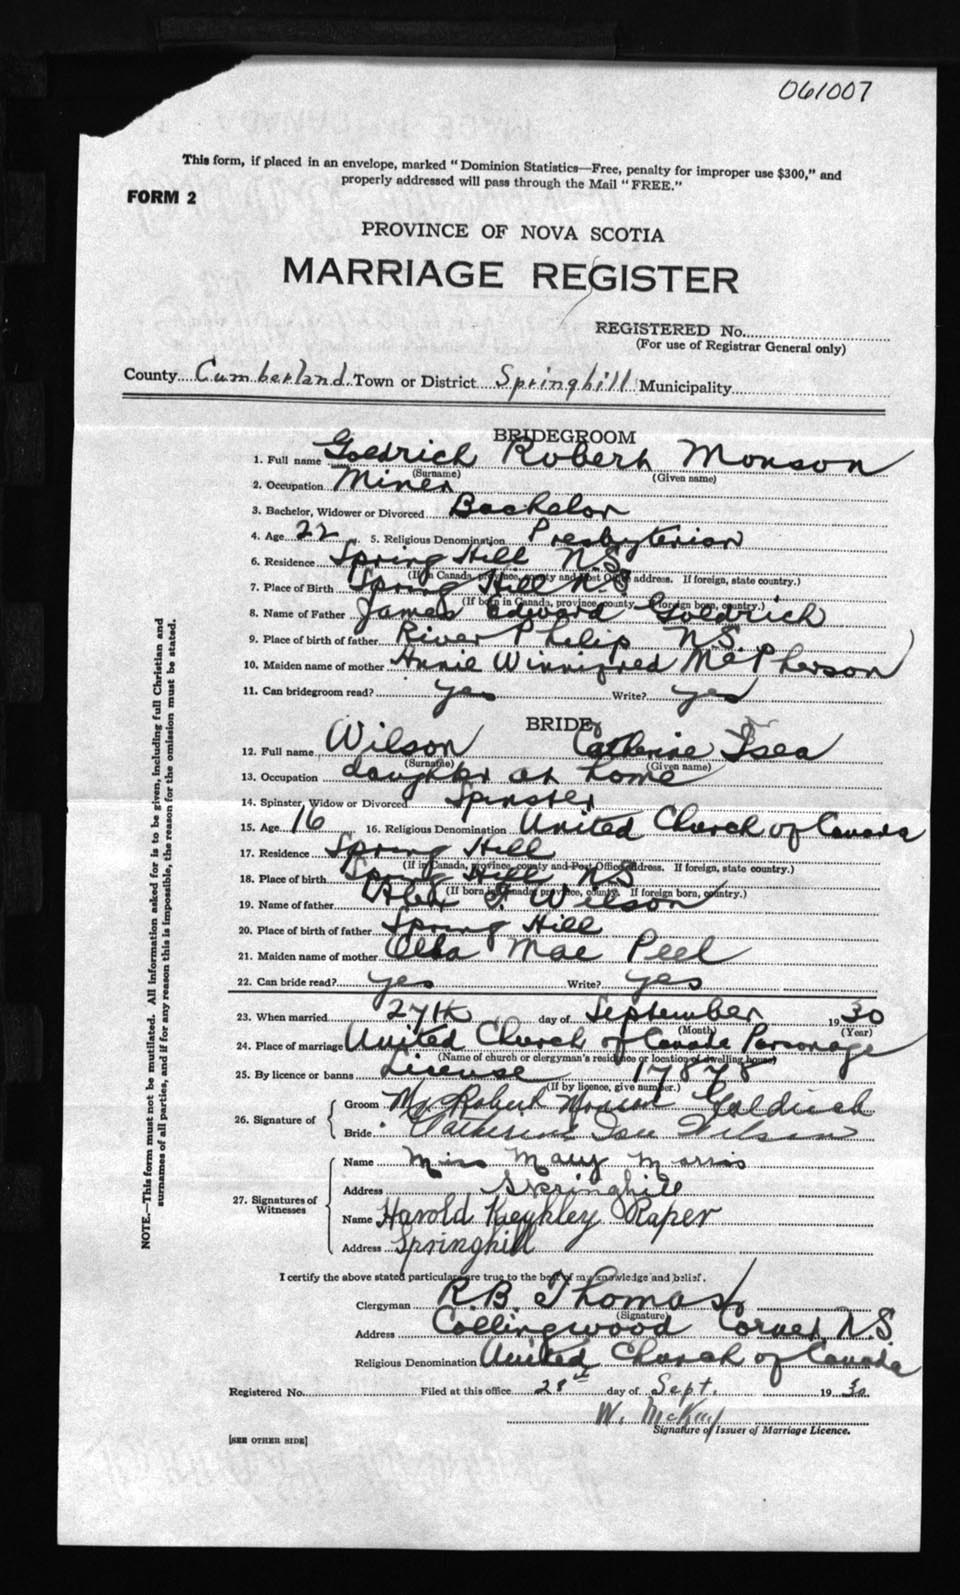 061007
This form, if placed in an envelope, marked "Dominion Statistics—Free, penalty for improper use $300," and
properly addressed will pass through the Mail "FREE."
FORM 2
PROVINCE OF NOVA SCOTIA
MARRIAGE REGISTER
REGISTERED No.
(For use of Registrar General only)
County Cumberland Town or District Springhill Municipality
BRIDEGROOM
1. Full name Goldrich Robert Monson
(Surname) (Given name)
2. Occupation Miner
3. Bachelor, Widower or Divorced Bachelor
4. Age 22 5. Religious Denomination Presbyterian
6. Residence Spring Hill N.S.
(If in Canada, province, county and Post Office address. If foreign, state country.)
7. Place of Birth Spring Hill N.S.
(If born in Canada, province, county. If foreign born, country.)
8. Name of Father James Edward Goldrich
9. Place of birth of father River Philip N.S.
10. Maiden name of mother Annie Winnifred McPherson
11. Can bridegroom read? yes Write? yes
BRIDE
12. Full name Wilson Catherine Isea
(Surname) (Given name)
13. Occupation daughter at home
14. Spinster, Widow or Divorced Spinster
15. Age 16 16. Religious Denomination United Church of Canada
17. Residence Spring Hill
(If in Canada, province, county and Post Office address. If foreign, state country.)
18. Place of birth Spring Hill N.S.
(If born in Canada, province, county. If foreign born, country.)
19. Name of father Wilson
20. Place of birth of father Spring Hill
21. Maiden name of mother Mae Peel
22. Can bride read? yes Write? yes
23. When married 27th day of September 1930
(Month) (Year)
24. Place of marriage United Church of Canada Parsonage
(Name of church or clergyman's residence or location of dwelling house)
25. By licence or banns License 17878
(If by licence, give number.)
26. Signature of
Groom Mr Robert Monson Goldrich
Bride Catherine Wilson
27. Signatures of Witnesses
Name Miss Mary Morris
Address Springhill
Name Harold Keighley Raper
Address Springhill
I certify the above stated particulars are true to the best of my knowledge and belief.
Clergyman R.B. Thomas
(Signature)
Address Collingwood Corner N.S.
Religious Denomination United Church of Canada
Registered No. Filed at this office 28th day of Sept. 1930
W. McKay
Signature of Issuer of Marriage Licence.
[SEE OTHER SIDE]
NOTE.—This form must not be mutilated. All information asked for is to be given, including full Christian and
surnames of all parties, and if for any reason this is impossible, the reason for the omission must be stated.